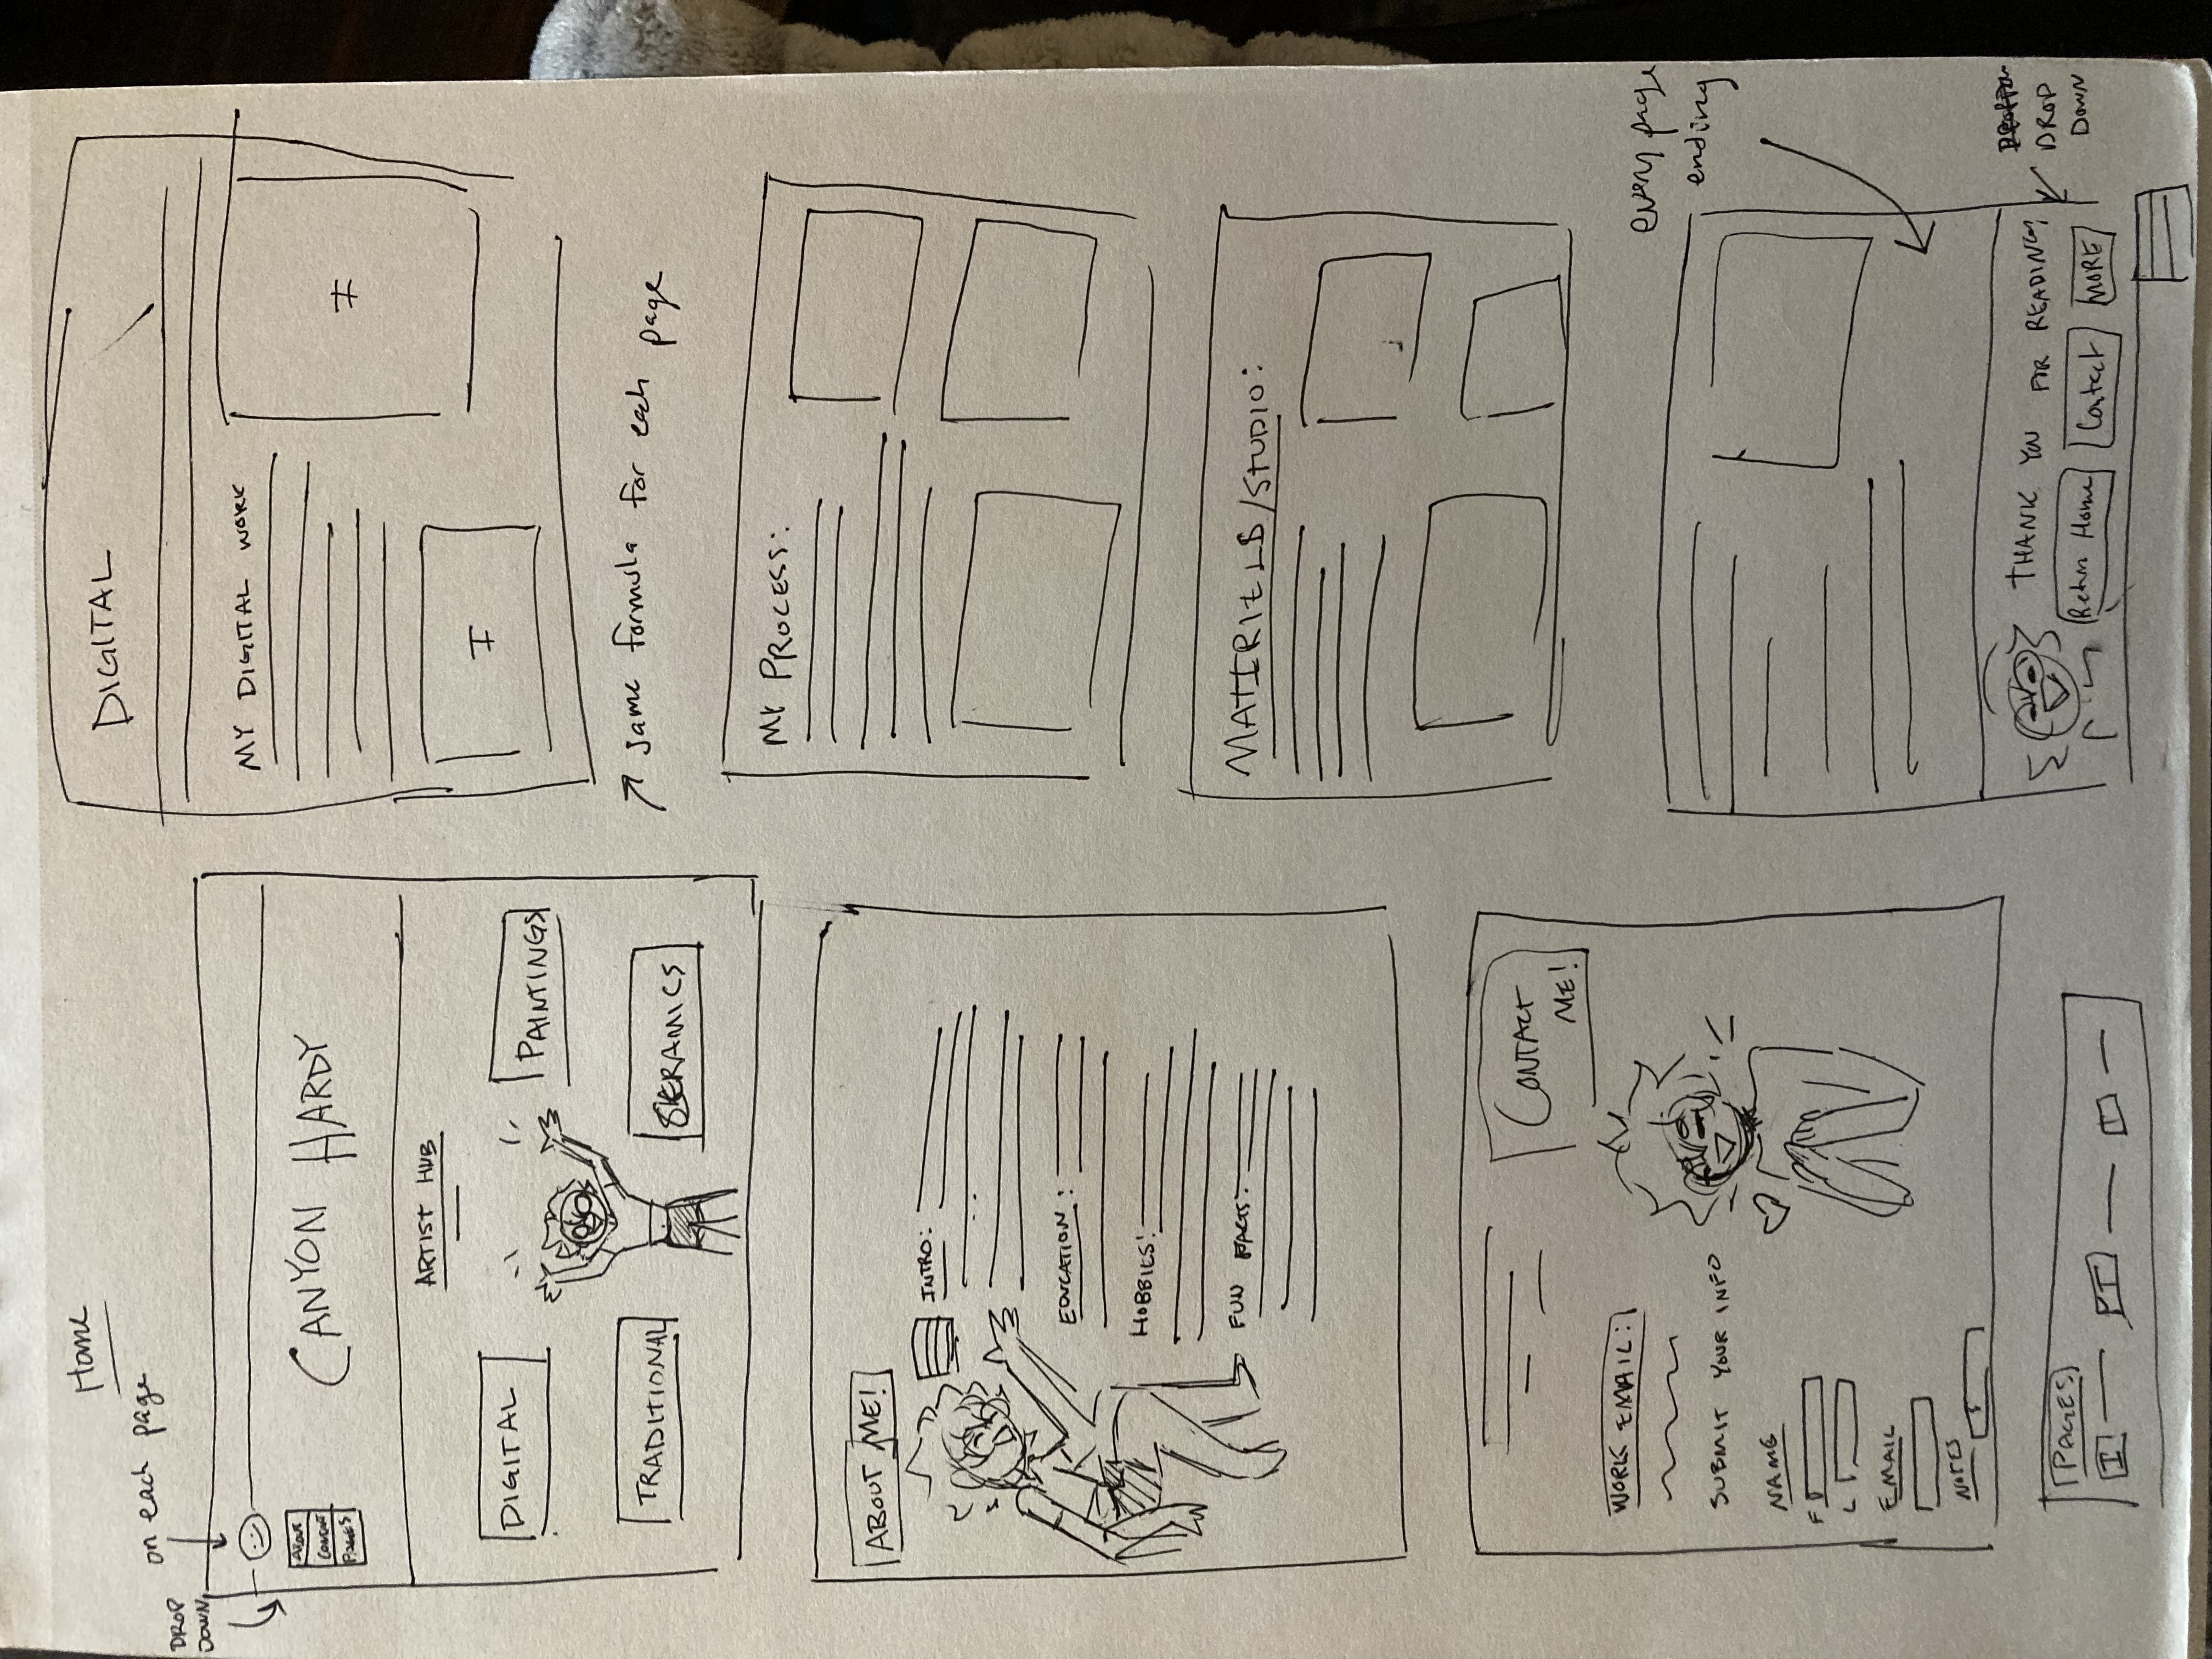 Home
on each page
DROP
DOWN
ABOUT
CONTACT
PAGES
CANYON HARDY
ARTIST HUB
DIGITAL
PAINTINGS
TRADITIONAL
CERAMICS
ABOUT ME!
INTRO:
EDUCATION:
HOBBIES:
FUN FACTS:
CONTACT
ME!
WORK EMAIL:
SUBMIT YOUR INFO
NAME
F
L
EMAIL
NOTES
PAGES
I
I
DIGITAL
MY DIGITAL WORK
I
I
same formula for each page
MY PROCESS:
MATIRIELS/STUDIO:
every page
ending
THANK YOU FOR READING
Return Home
Contact
MORE
DROP
DOWN